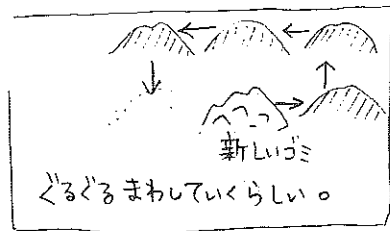 新しいゴミ
ぐるぐるまわしていくらしい。